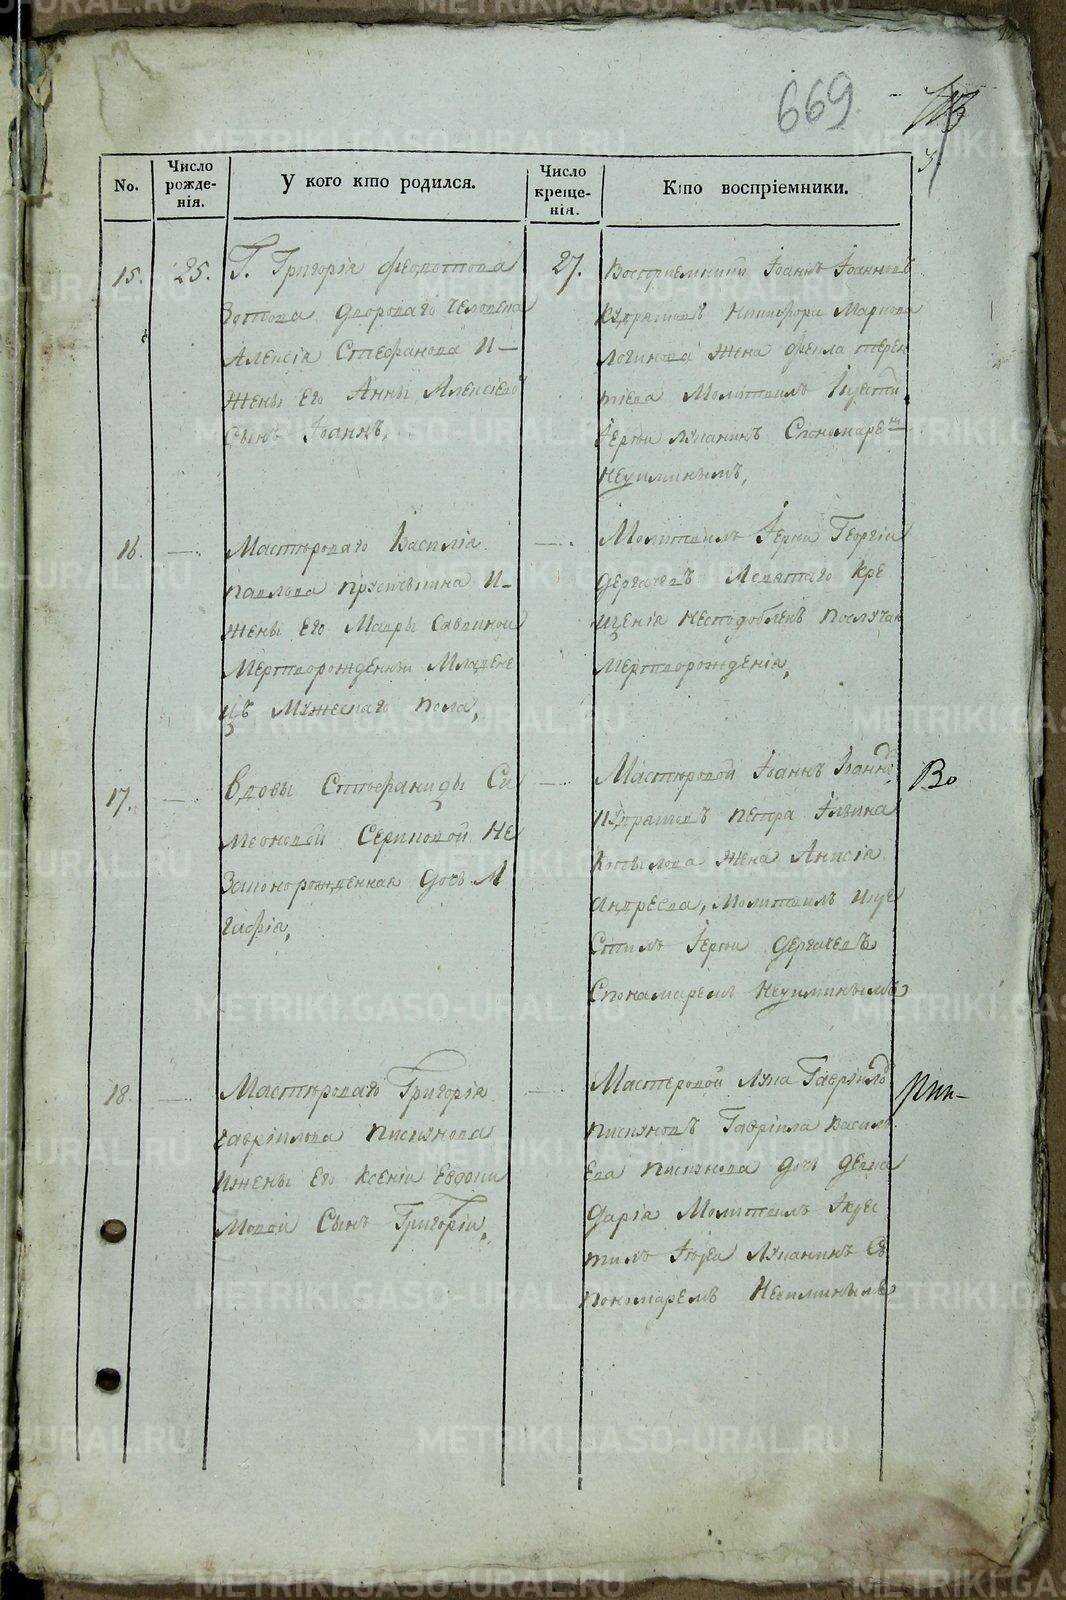 669
No.
Число рожде- нія.
У кого кто родился.
Число креще- нія.
Кто воспріемники.
15.
25.
Г. Григорія Федотова
Зотова дворового человека
Алексія Стефанова и
жены его Анны Алексіевой
сынъ Іоаннъ,
27.
Восприемники Іоаннъ Іоанновъ
Кудряшовъ Никифора Маркова
Логинова жена Фекла Терен
тіева Молитвилъ Крести
Іереи Лукания Спономаре
Неуиминымъ,
16.
Мастероваго Василія
Павлова и
жены его Мавры Саввиной
Мертворожденныи Младене
цъ Мужескаго пола,
Молитвилъ Іереи Георгіи
Дергачевъ Асвятаго Кре
щенія Несподобленъ Послучаю
Мертворожденія,
17.
Вдовы Стефаниды Си
меоновой Сериковой Не
Законорожденная дочь
Мастеровой Іоаннъ Іоанно
Кудряшовъ Петра Ильина
жена Анисія
Андреева, Молитвилъ икре
стилъ Іереи Дергачевъ
Спонамаремъ Неуиминымъ
Во
18.
Мастероваго Григорія
Гавріилова Пискунова
ижены его Ксеніи Евдоки
мовой Сынъ Григоріи,
Мастеровой Лука Гавріиловъ
Пискуновъ Гавріила Василь
ева Пискунова дочь девка
Дарія Молитвилъ Икрес
тилъ Іереи Луканинъ Съ
пономаремъ Неуиминымъ
METRIKI.GASO-URAL.RU